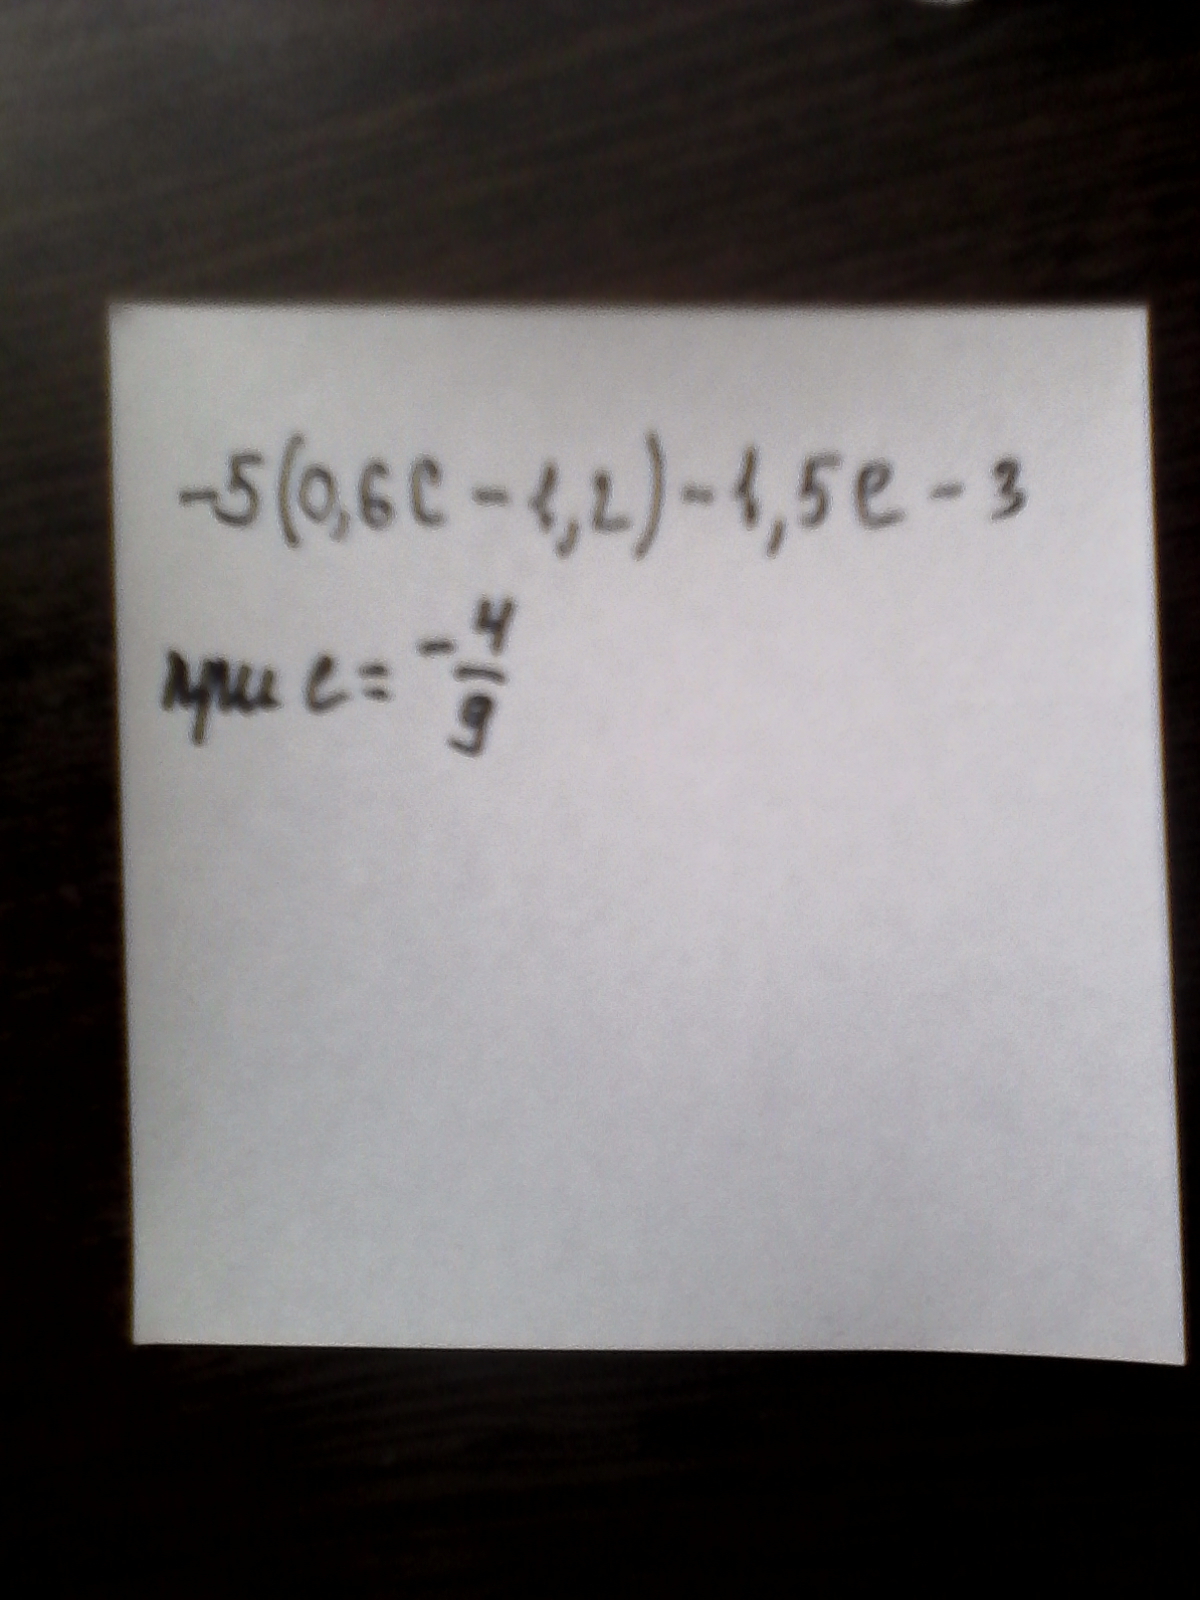 -5(0,6с - 1,2) - 1,5с - 3
при с = -4/9